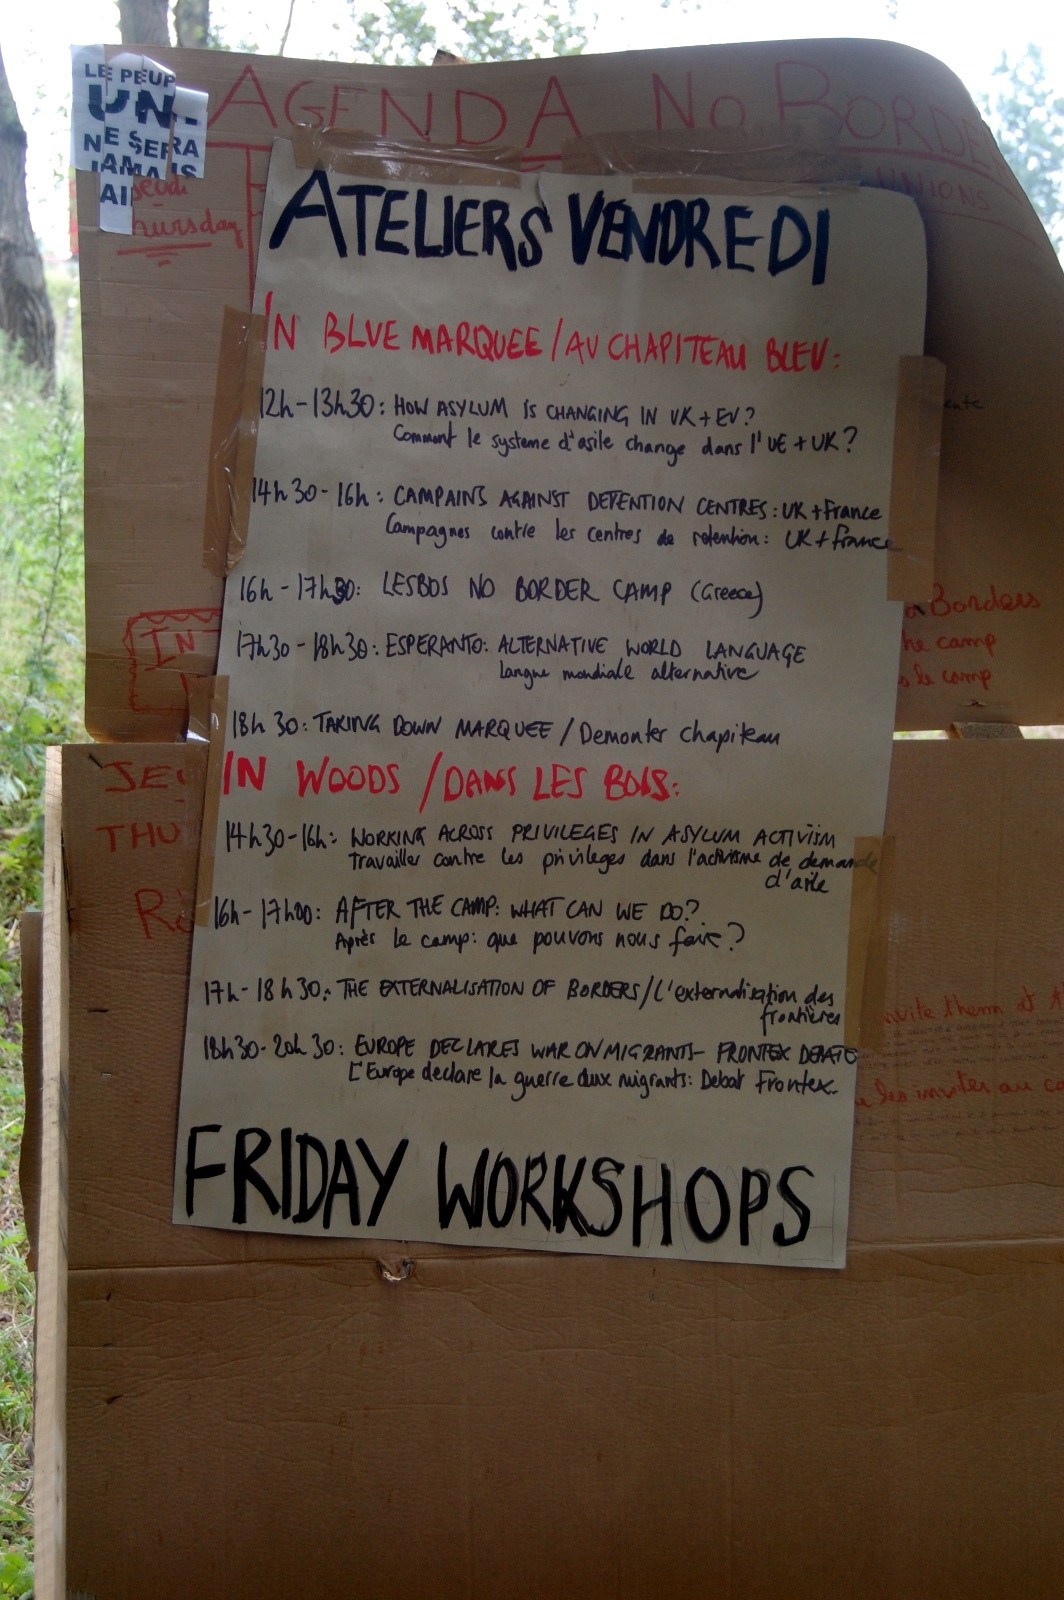 LE PEUP
UN.
NE SERA
JAMAIS
AGENDA NO BORDE
UNIONS
Jeudi
hursday
ATELIERS VENDREDI
IN BLUE MARQUEE/AU CHAPITEAU BLEU:
12h-13h30: HOW ASYLUM IS CHANGING IN UK+EU?
Comment le systeme d'asile change dans l'UE+UK?
14h30-16h: CAMPAINS AGAINST DETENTION CENTRES: UK+France
Campagnes contre les centres de retention: UK+france
16h-17h30: LESBOS NO BORDER CAMP (Greece)
17h30-18h30: ESPERANTO: ALTERNATIVE WORLD LANGUAGE
langue mondiale alternative
18h30: TAKING DOWN MARQUEE/Demonter chapiteau
IN WOODS/DANS LES BOIS:
14h30-16h: WORKING ACROSS PRIVILEGES IN ASYLUM ACTIVISM
Travailler contre les privileges dans l'activisme de demande
d'asile
16h-17h00: AFTER THE CAMP: WHAT CAN WE DO?
Après le camp: que pouvons nous faire?
17h-18h30: THE EXTERNALISATION OF BORDERS/L'externalisation des
frontières
18h30-20h30: EUROPE DECLARES WAR ON MIGRANTS- FRONTEX DEBATE
L'Europe declare la guerre aux migrants: Debat Frontex
FRIDAY WORKSHOPS
IN
Borders
he camp
le camp
JEU
THU
nvite them at t
les inviter au ca